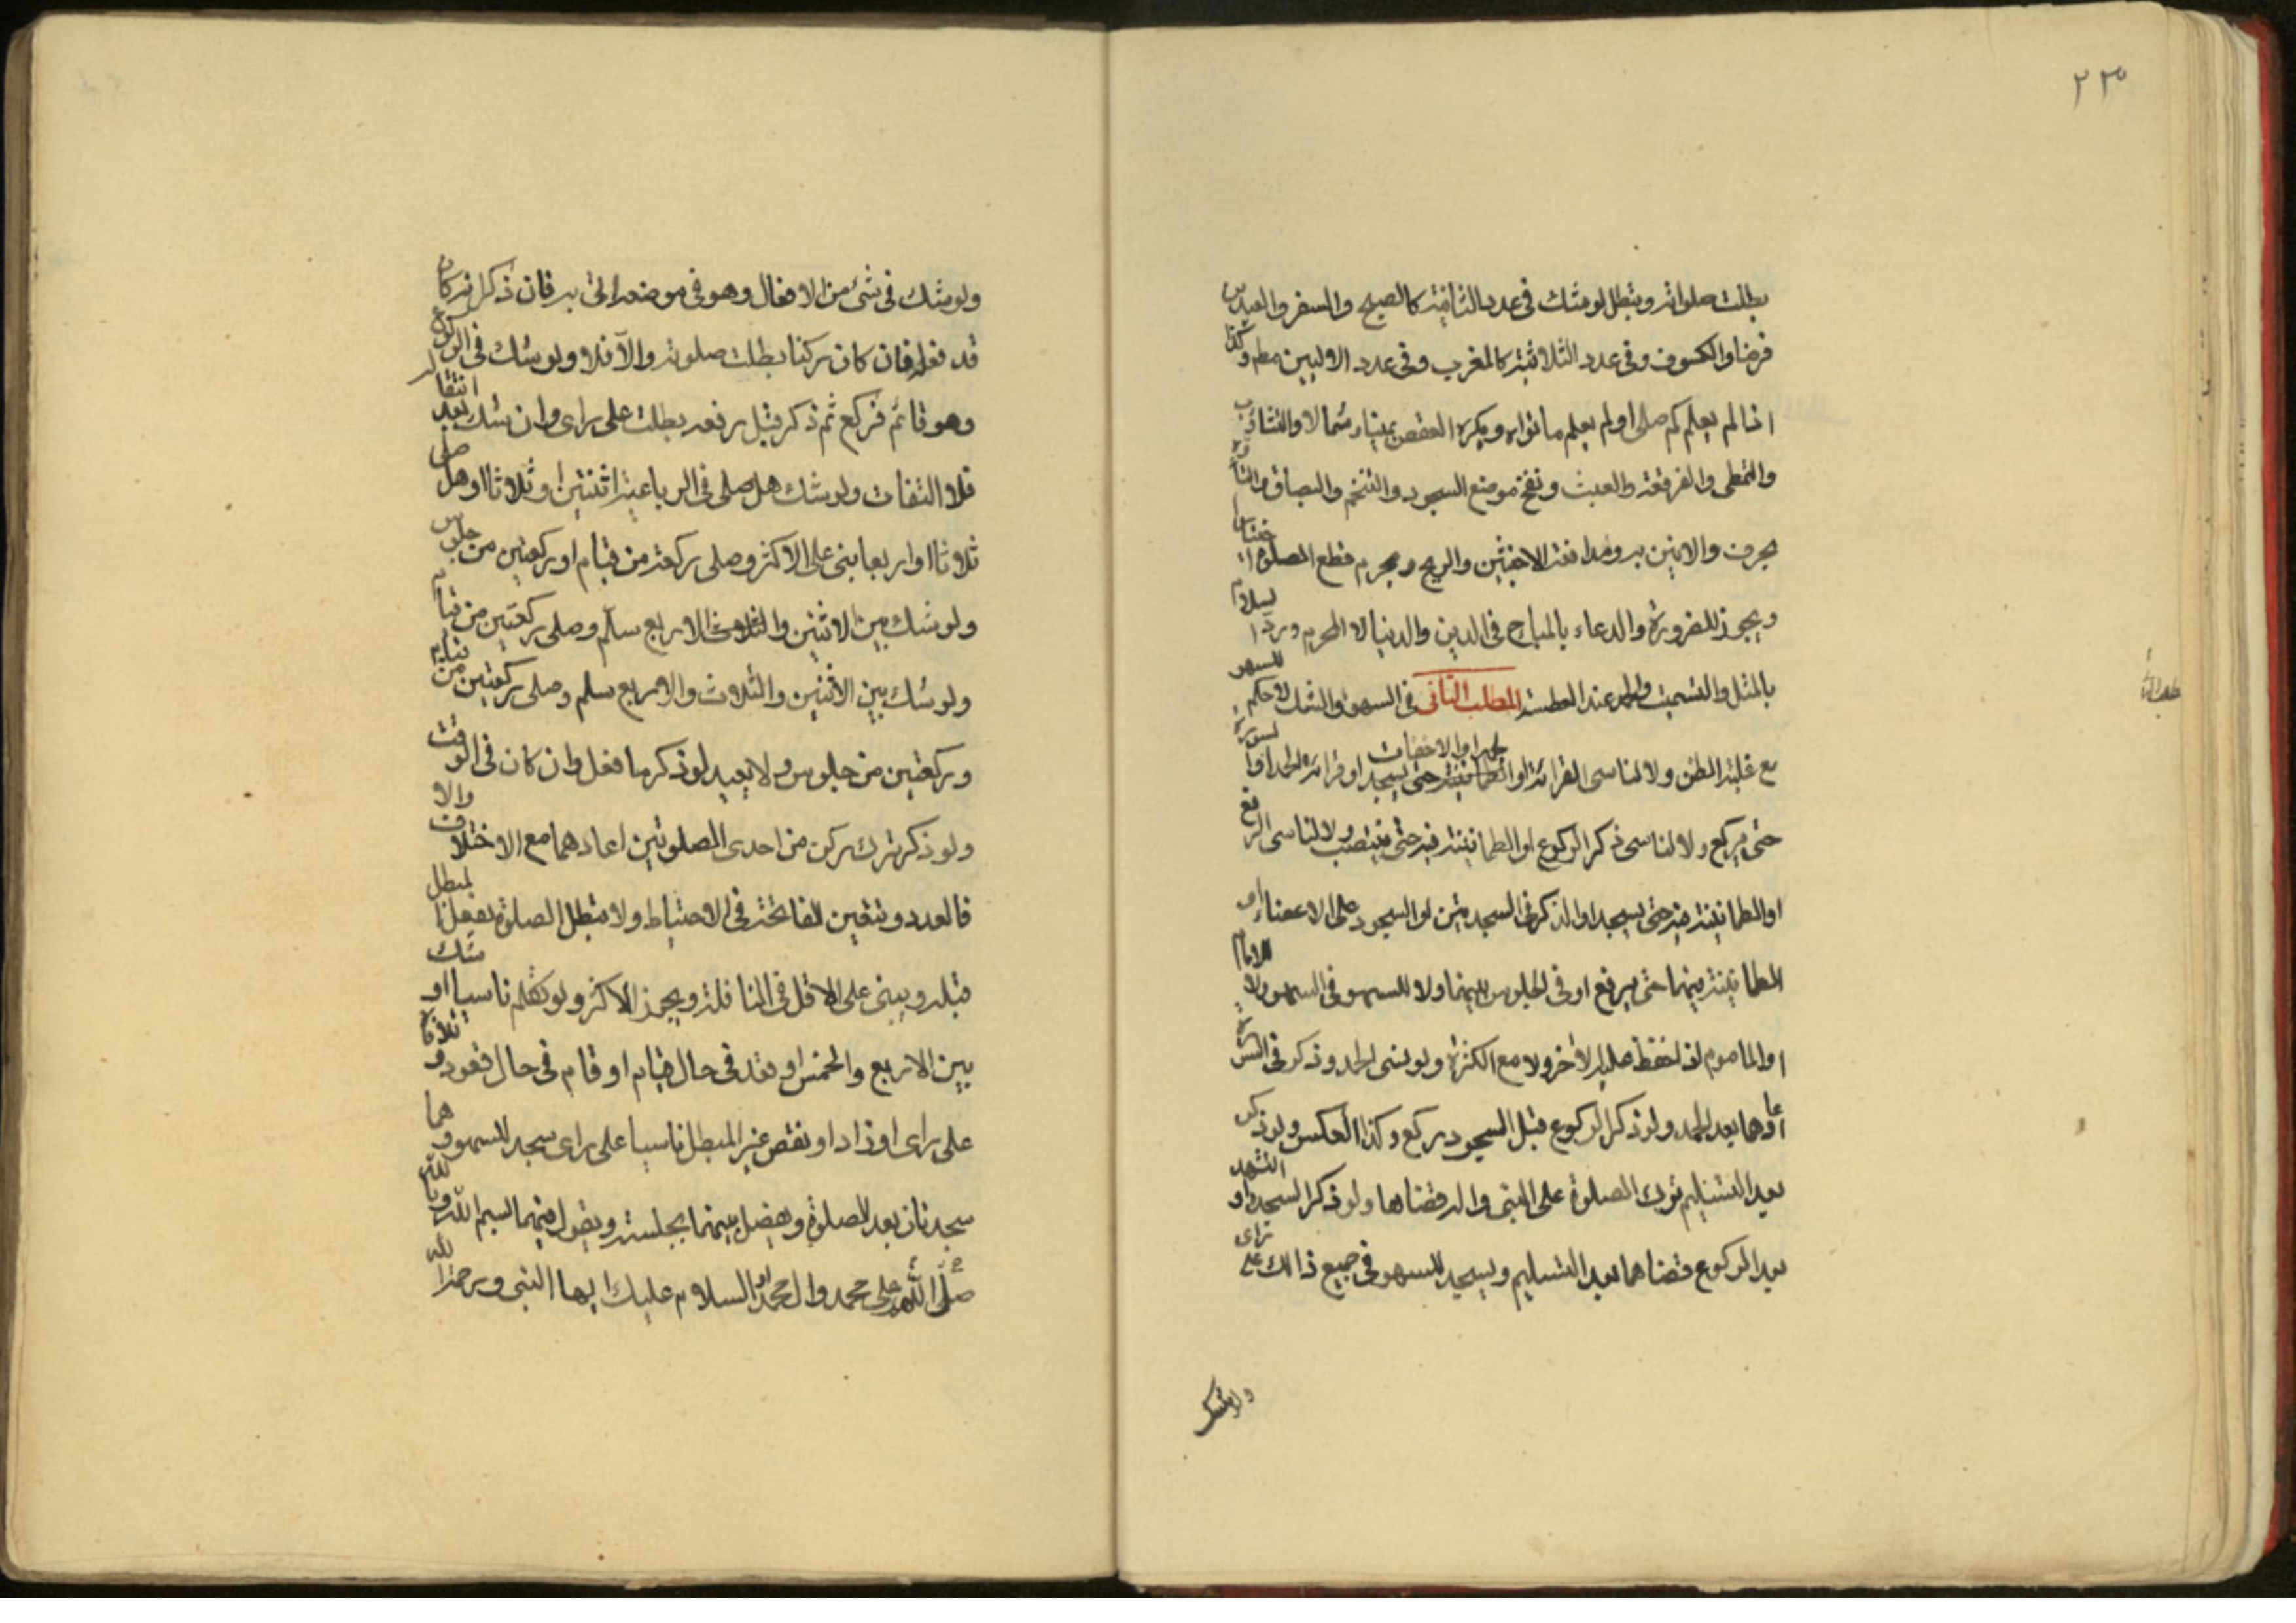 ٢٣
بطلت صلواته وتبطل لو شك فى عدد الثنائية كالصبح والسفر والعيدين
فرضا والكسوف وفى عدد الثلاثية كالمغرب وفى عدد الاوليين مطم وكذا
اذا لم يعلم كم صلى او لم يعلم ما نواه ويكره العقص يمينا وشمالا والتثاوب
والتمطى والفرقعة والعبث ونفخ موضع السجود والتنخم والبصاق والتأوه
بحرف والانين به ومدافعة الاخبثين والريح ويحرم قطع الصلوة اختيارا
ويجوز للضرورة والدعاء بالمباح فى الدين والدنيا لا المحرم ورد السلام
بالمثل والتسميت والحمد عند العطسة المطلب الثانى فى السهو والشك لا حكم للسهو
مع غلبة الظن ولا لناسى القرائة او الجهر او الاخفات او قرائة الحمد او السورة
حتى يركع ولا لناسى ذكر الركوع او الطمانينة فيه حتى ينتصب ولا لناسى الرفع
او الطمانينة فيه حتى يسجد او الذكر فى السجدتين او السجود على الاعضاء او
الطمانينة فيهما حتى يرفع او فى الجلوس بينهما ولا للسهو فى السهو ولا للامام
او الماموم اذا حفظ عليه الاخر ولا مع الكثرة ولو نسى الحمد وذكر فى السورة
اعادهما بعد الحمد ولو ذكر الركوع قبل السجود ركع وكذا العكس ولو ذكر
بعد التسليم ترك الصلوة على النبى واله قضاها ولو ذكر السجدة او التشهد
بعد الركوع قضاهما بعد التسليم ويسجد للسهو فى جميع ذالك على راى
ولو شك
ولو شك فى شئ من الافعال وهو فى موضعه اتى به فان ذكر انه كان
قد فعله فان كان ركنا بطلت صلوته والا فلا ولو شك فى الركوع
وهو قائم فركع ثم ذكر قبل رفعه بطلت على راى وان شك بعد انتقاله
فلا التفات ولو شك هل صلى فى الرباعية اثنتين او ثلاثا او هل صلى
ثلاثا او اربعا بنى على الاكثر وصلى ركعة من قيام او ركعتين من جلوس
ولو شك بين الاثنين والاربع سلم وصلى ركعتين من قيام
ولو شك بين الاثنين والثلاث والاربع سلم وصلى ركعتين من قيام
وركعتين من جلوس ولا يعيد لو ذكر ما فعل وان كان فى الوقت
ولو ذكر ترك ركن من احدى الصلوتين اعادهما مع الاختلاف والا
فالعدد وتتعين الفاتحة فى الاحتياط ولا تبطل الصلوة بفعل المبطل
قبله ويبنى على الاقل فى النافلة ويجوز الاكثر ولو تكلم ناسيا او شك
بين الاربع والخمس او قعد فى حال قيام او قام فى حال قعود وتلافاه
على راى او زاد او نقص غير المبطل ناسيا على راى سجد للسهو وهما
سجدتان بعد الصلوة ويفصل بينهما بجلسة ويقول فيهما بسم الله وبالله
صل اللهم على محمد وال محمد او السلام عليك ايها النبى ورحمة الله